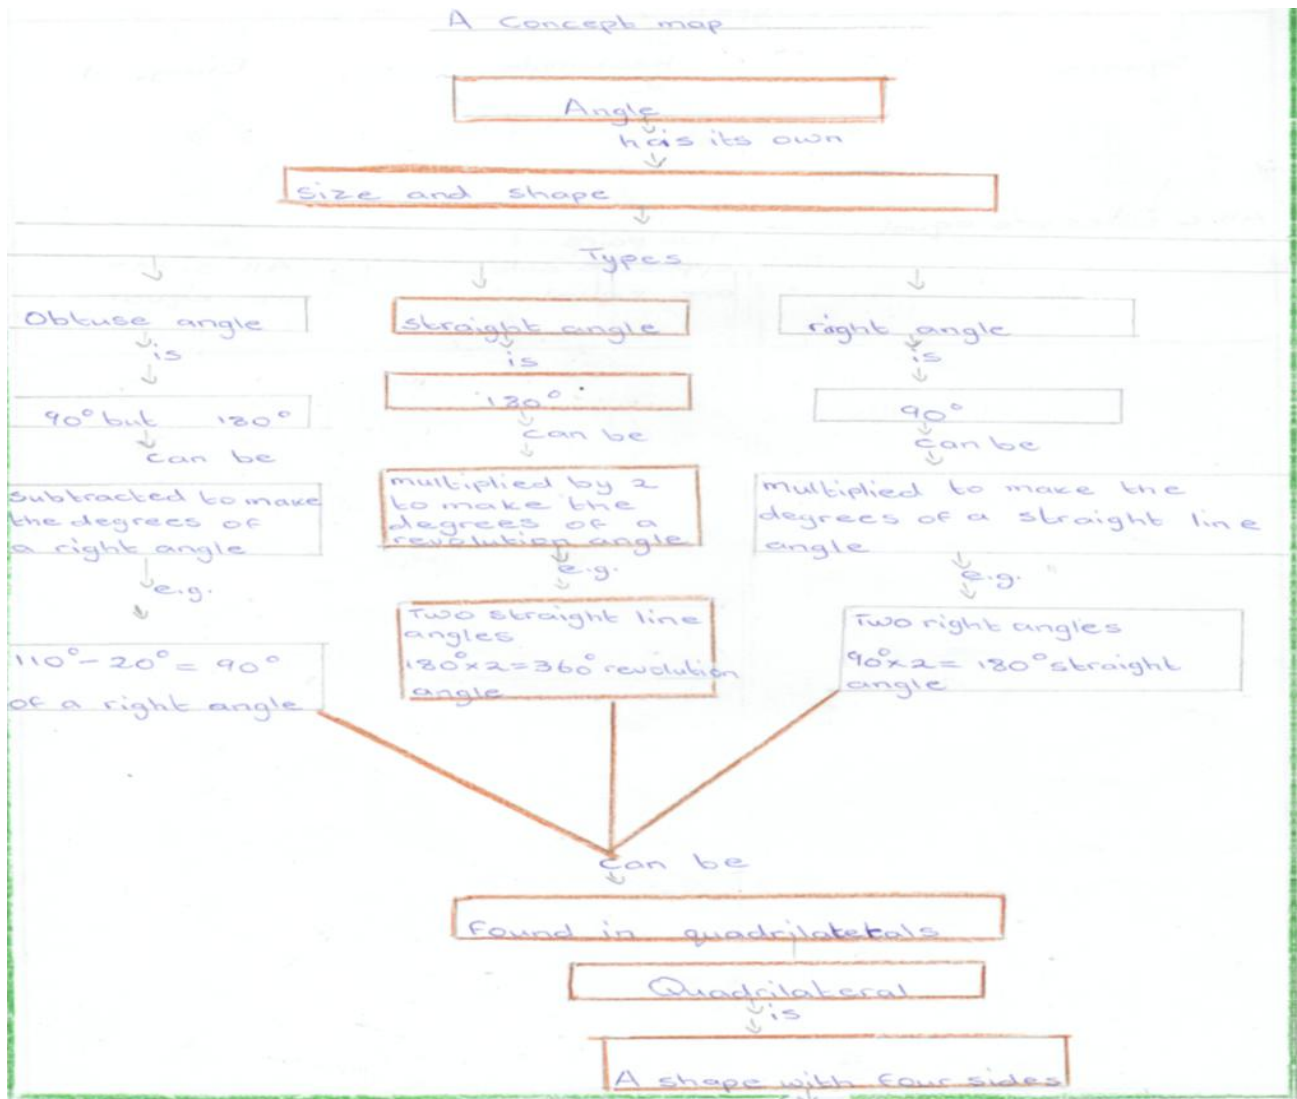 A Concept map
Angle
has its own
size and shape
Types
Obtuse angle
is
90° but 180°
can be
subtracted to make
the degrees of
a right angle
e.g.
110° - 20° = 90°
of a right angle
straight angle
is
180°
can be
multiplied by 2
to make the
degrees of a
revolution angle
e.g.
Two straight line
angles
180° x 2 = 360° revolution
angle
right angle
is
90°
can be
multiplied to make the
degrees of a straight line
angle
e.g.
Two right angles
90° x 2 = 180° straight
angle
can be
Found in quadrilaterals
Quadrilateral
is
A shape with four sides